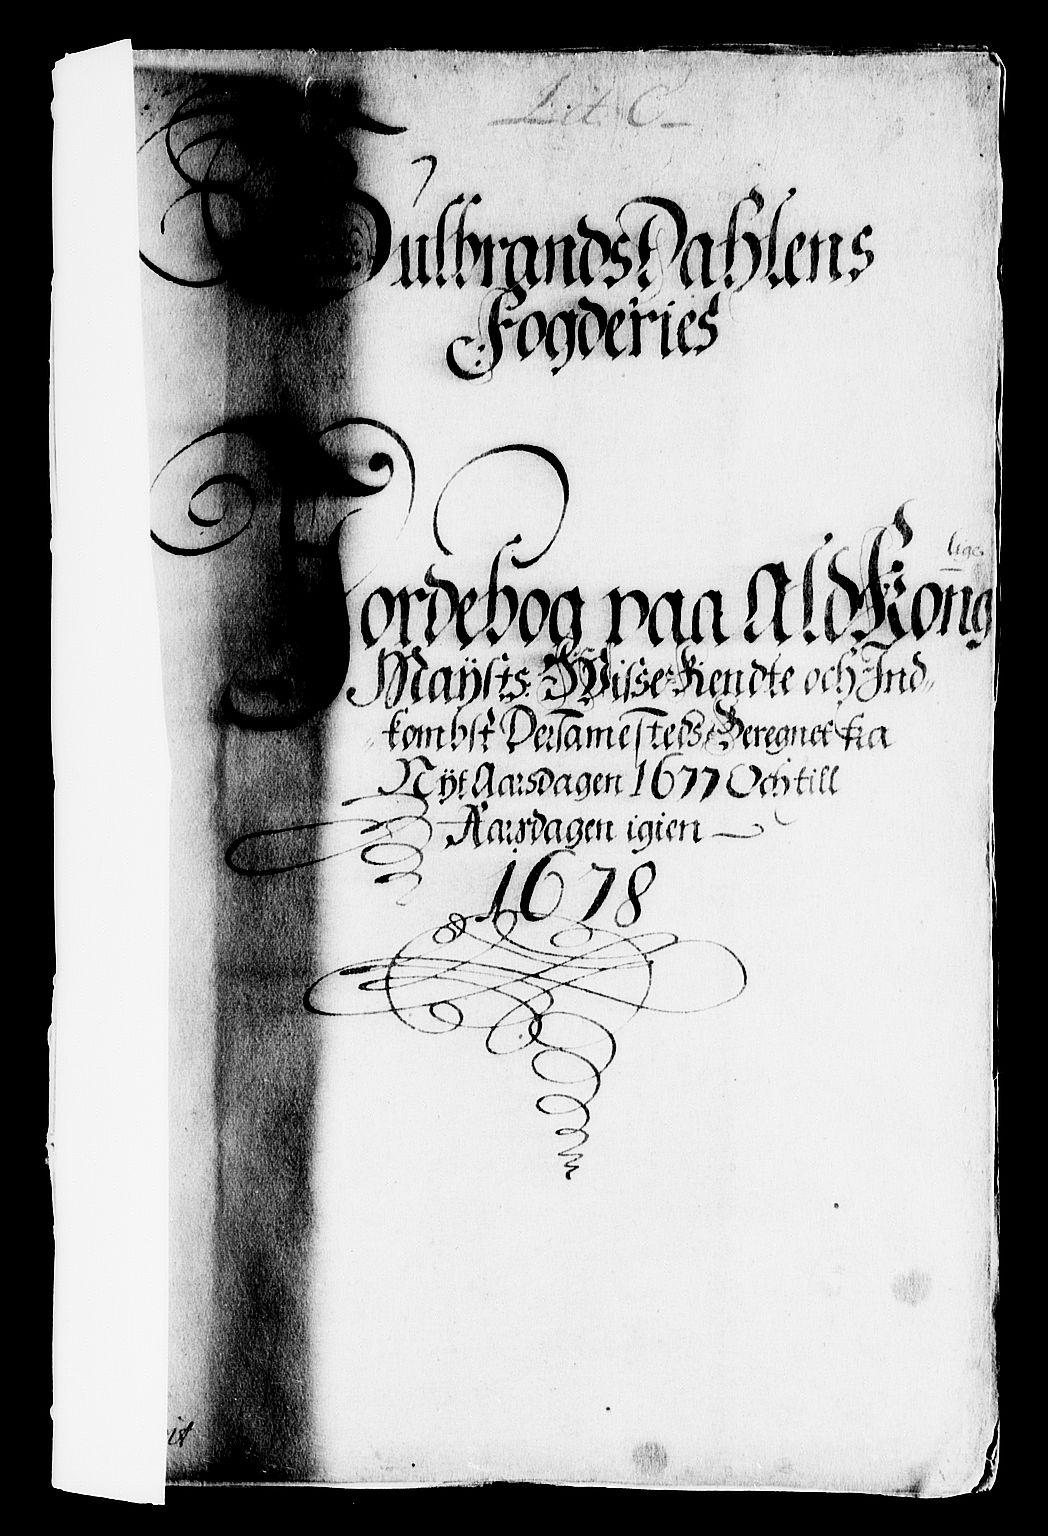 Lit. C
GulbrandsDahlens
Fogderies
Jordebog paa Ald Kong
lige
Maÿsts: Wisse Riendte och Ind
kombst Dersamesteds Beregnet fra
Nÿt Aarsdagen 1677 Och till
Aarsdagen igien
1678